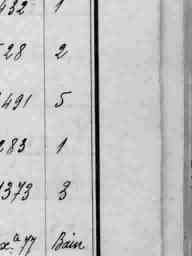 432 1
528 2
491 5
283 1
1373 3
Bain